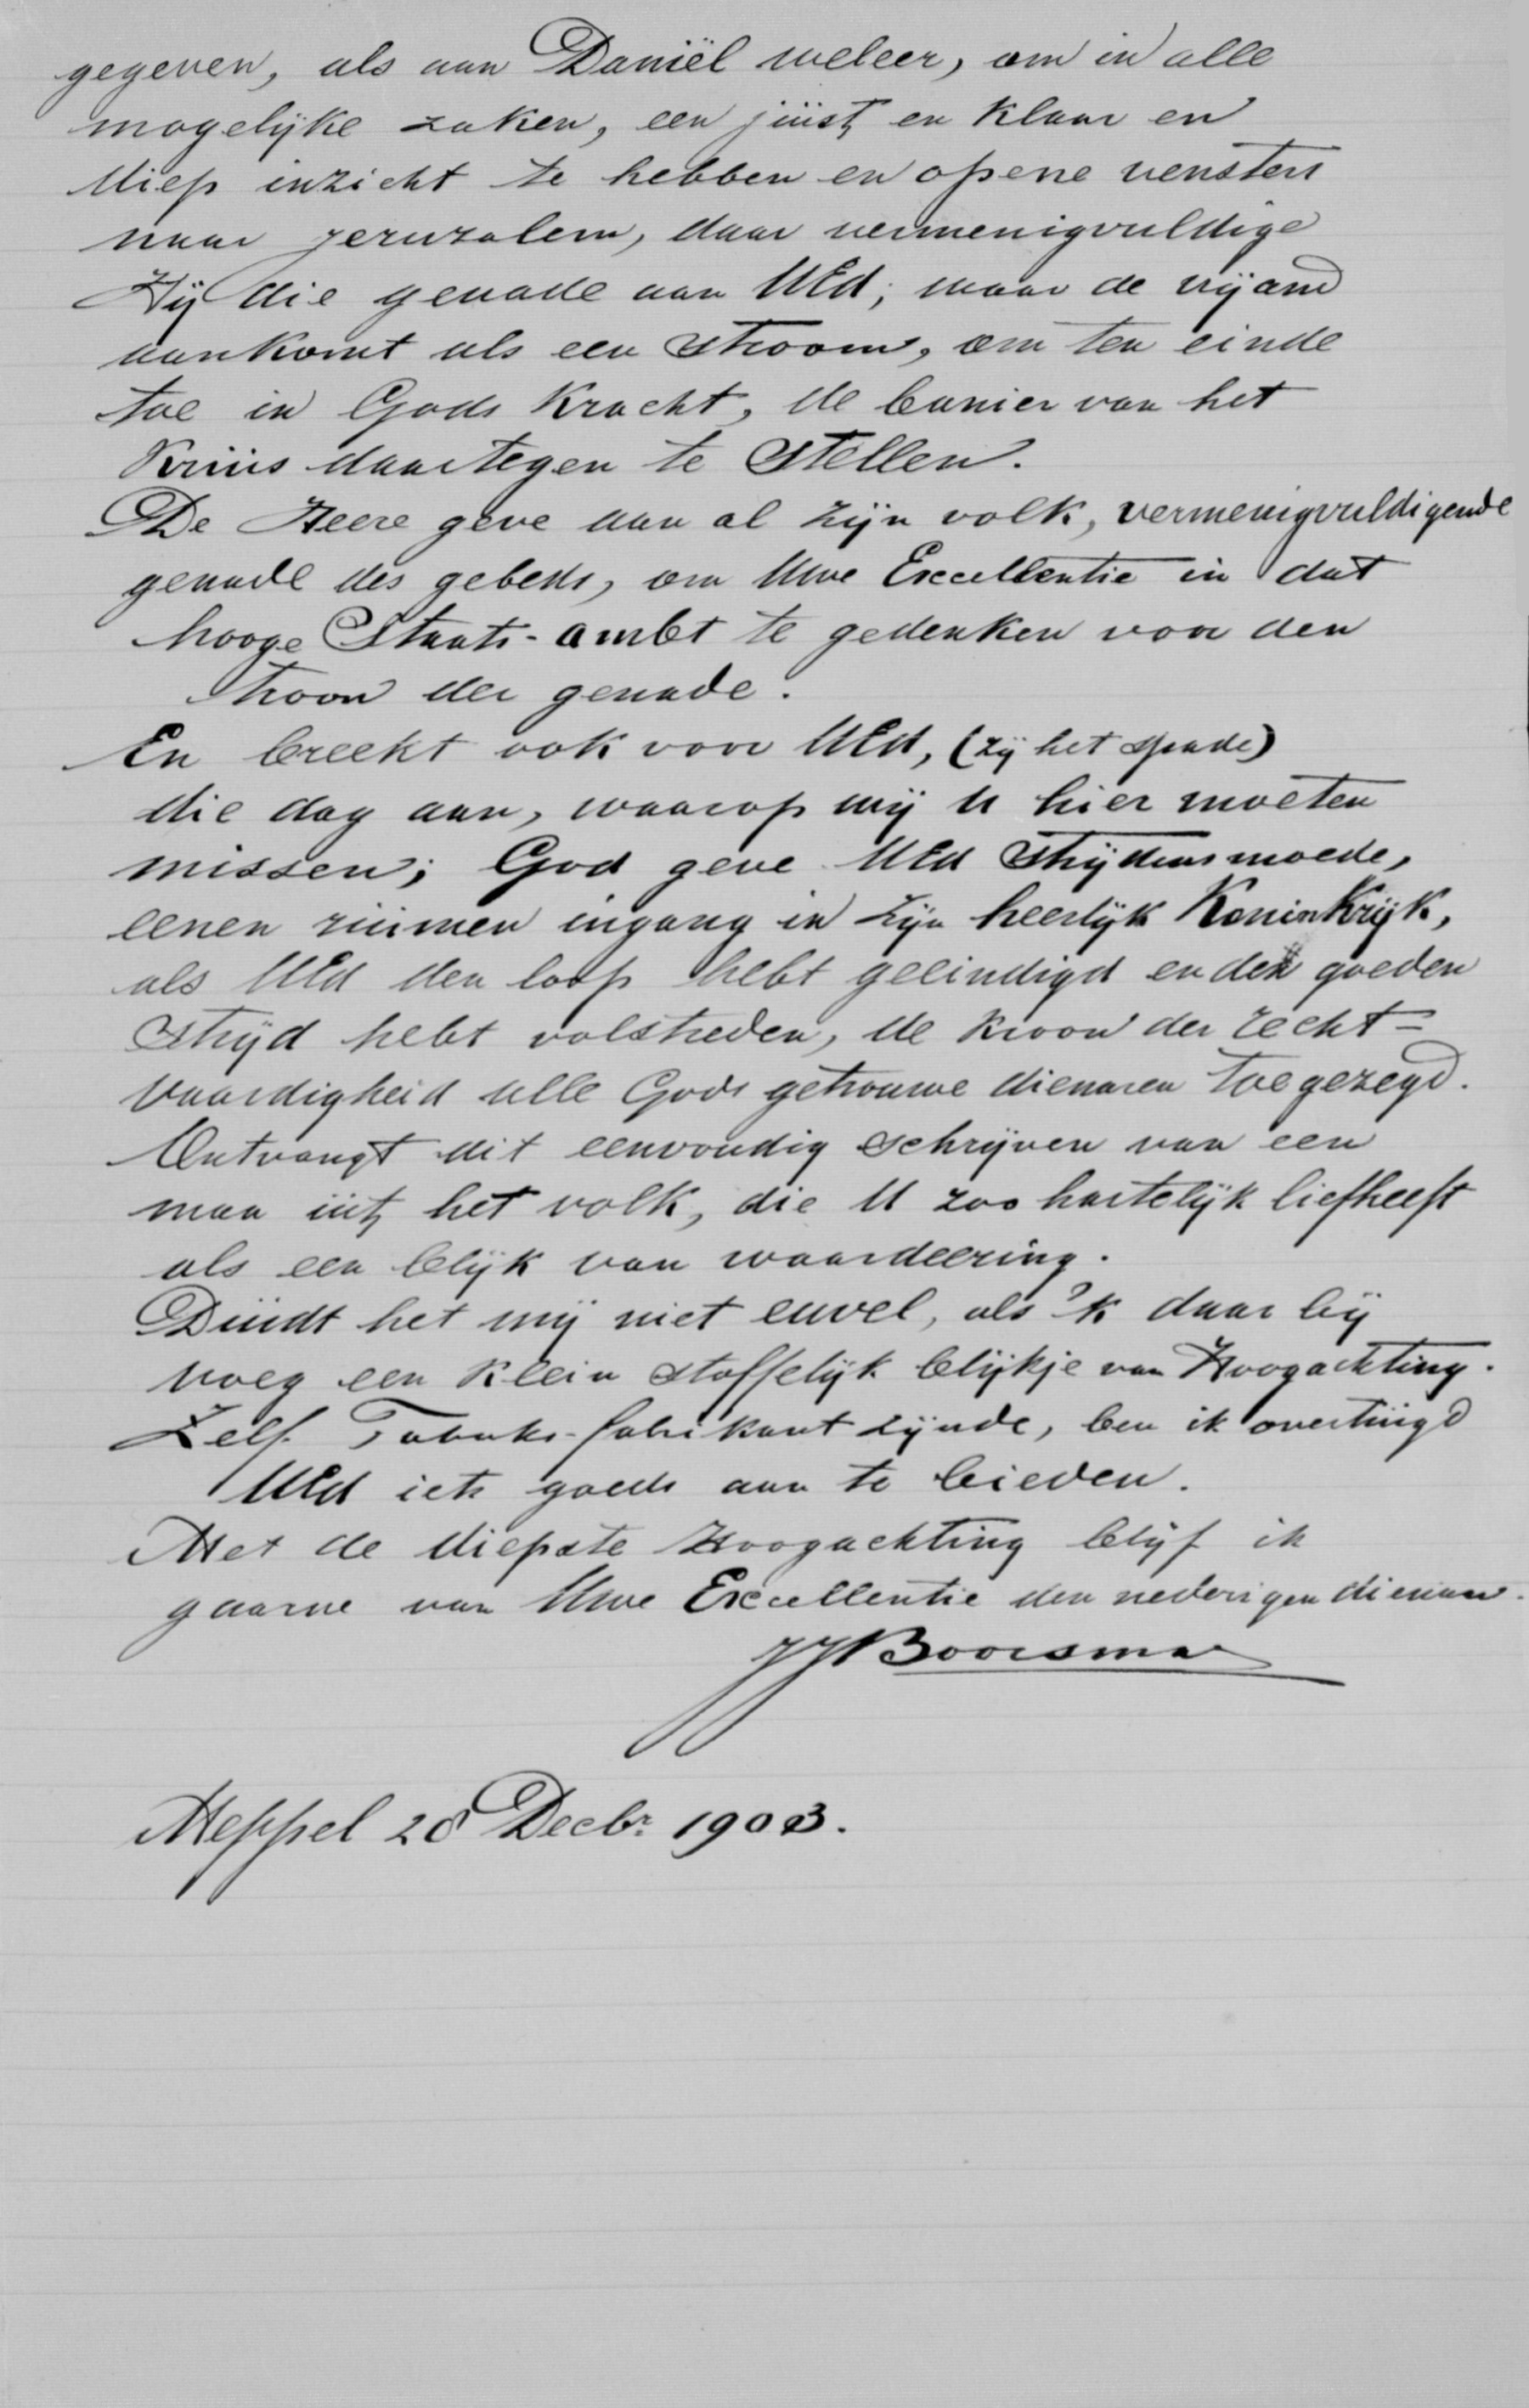 gegeven, als aan Daniël weleer, om in alle
mogelijke zaken, een juist en klaar en
diep inzicht te hebben en opene vensters
naar Jeruzalem, daar vermenigvuldige
Hij die genade aan UEd; waar de vijand
aankomt als een stroom, om ten einde
toe in Gods kracht, de banier van het
Kruis daartegen te stellen.
De Heere geve aan al zijn volk, vermenigvuldigende
genade des gebeds, om Uwe Excellentie in dat
hooge Staats-ambt te gedenken voor den
troon der genade.
En breekt ook voor UEd, (zij het spade)
die dag aan, waarop wij U hier moeten
missen; God geve UEd strijdensmoede,
eenen ruimen ingang in zijn heerlijk Koninkrijk,
als UEd den loop hebt geeindigd en den goeden
strijd hebt volstreden, de kroon der recht-
vaardigheid alle Gods getrouwe dienaren toegezegd.
Ontvangt dit eenvoudig schrijven van een
man uit het volk, die U zoo hartelijk liefheeft
als een blijk van waardeering.
Duidt het mij niet euvel, als 'k daar bij
voeg een klein stoffelijk blijkje van Hoogachting.
Zelf Tabaks-fabrikant zijnde, ben ik overtuigd
UEd iets goeds aan te bieden.
Met de diepste Hoogachting blijf ik
gaarne van Uwe Excellentie den nederigen dienaar.
JJ Boorsma
Meppel 28 Decbr 1903.